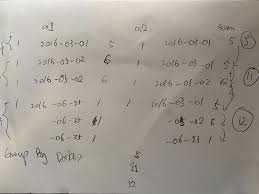 a1 a2 sum
1 2016-03-01 5 1 2016-03-01 5 5
1 2016-03-02 6 1 2016-03-01 5
1 2016-03-02 6 11
1 2016-06-25 1 1 2016-03-01 5
-06-25 1 -03-02 6 12
-06-25 1 -06-25 1
Group By Date
5
11
12